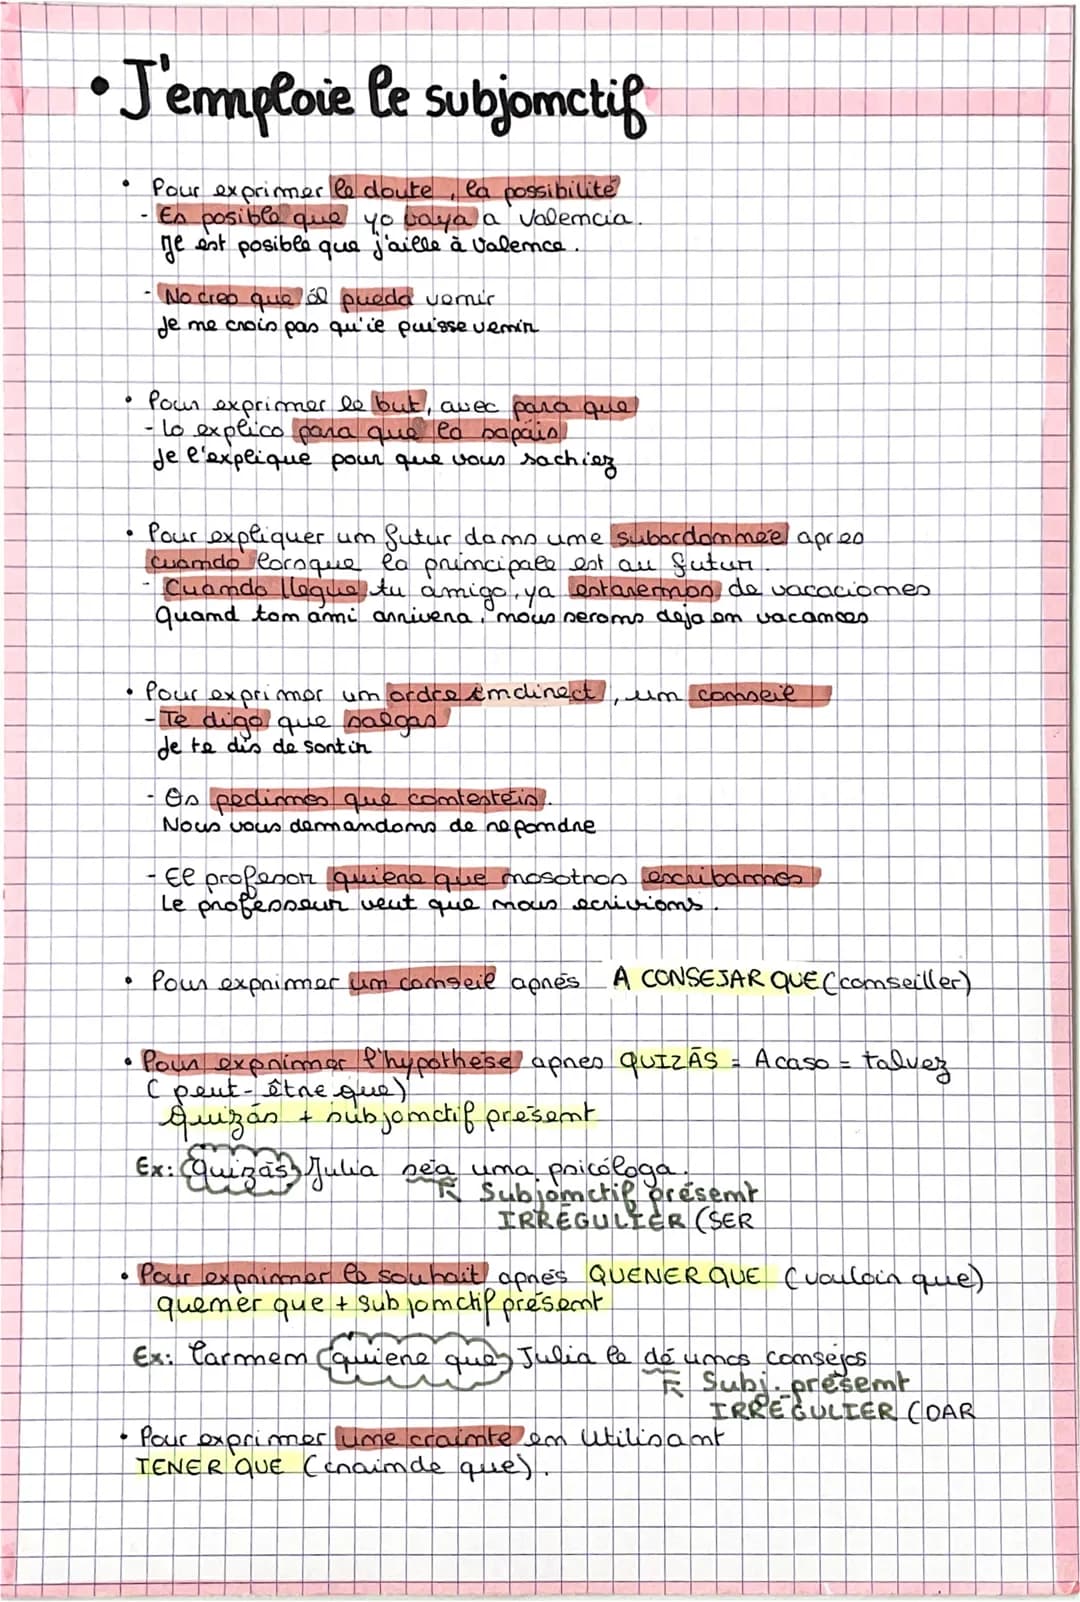 • J'emploie le subjonctif
• Pour exprimer le doute, la possibilité
- Es posible que yo vaya a Valencia.
Il est posible que j'aille à Valence.
- No creo que él pueda venir
Je ne crois pas qu'il puisse venir
• Pour exprimer le but, avec para que
- Lo explico para que lo sapáis
Je l'explique pour que vous sachiez
• Pour expliquer un futur dans une subordonnée apres
cuando lorsque la principale est au futur.
- Cuando llegue tu amigo, ya estaremos de vacaciones
Quand ton ami arrivera, nous serons deja en vacances
• Pour exprimer un ordre indirect, un conseil
- Te digo que salgas
Je te dis de sortir
- Os pedimos que contestéis.
Nous vous demandons de repondre
- El profesor quiere que nosotros escribamos
Le professeur veut que nous ecrivions.
• Pour exprimer un conseil après A CONSEJAR QUE (conseiller)
• Pour exprimer l'hypothèse apres QUIZÁS = Acaso = talvez
( peut-être que)
Quizás + subjonctif présent
Ex: Quizás Julia sea una psicóloga.
Subjonctif présent
IRRÉGULIER (SER
• Pour exprimer le souhait après QUERER QUE (vouloir que)
querer que + Subjonctif présent
Ex: Carmen quiere que Julia le dé unos consejos
Subj. présent
IRRÉGULIER (DAR
• Pour exprimer une crainte en utilisant
TENER QUE (craindre que).